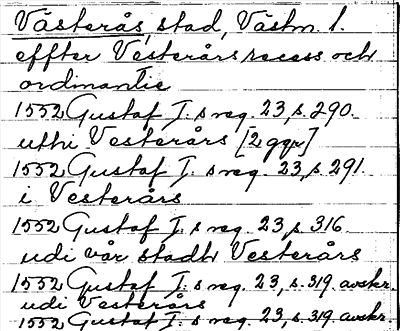 Västerås, stad, Västm. l.
effter Vesterårs recess och
ordinantie
1552 Gustaf I. s reg. 23, s. 290.
uthi Vesterårs [2 ggr]
1552 Gustaf I. s reg. 23, s. 291.
i Vesterårs
1552 Gustaf I. s reg. 23, s. 316
udi vår stadh Vesterårs
1552 Gustaf I. s reg. 23, s. 319. avskr.
udi Vesterårs
1552 Gustaf I. s reg. 23, s. 319. avskr.